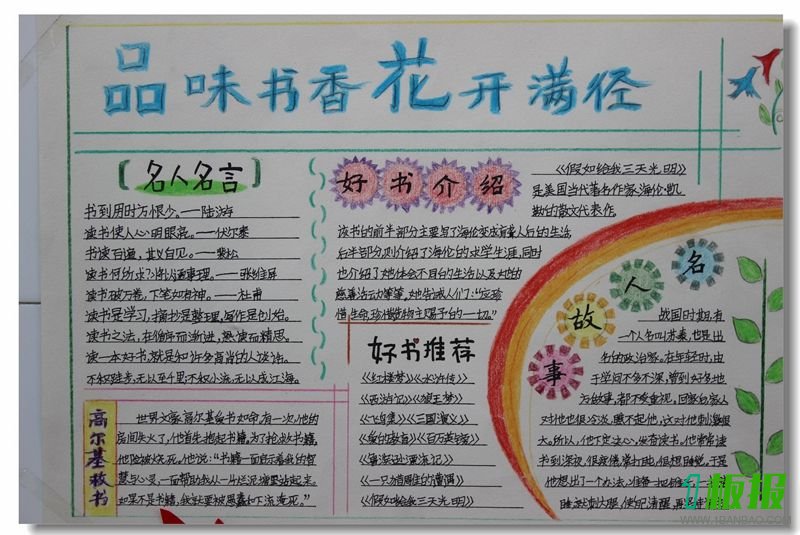 品味书香花开满径
名人名言
书到用时方恨少。——陆游
读书使人心明眼亮。——伏尔泰
书读百遍，其义自见。——裴松
读书何所求？将以通事理。——张维屏
读书破万卷，下笔如有神。——杜甫
读书是学习，摘抄是整理，写作是创造。
读书之法，在循序而渐进，熟读而精思。
读一本好书，就是和许多高尚的人谈话。
不积跬步，无以至千里；不积小流，无以成江海。
高尔基救书
世界文豪高尔基爱书如命，有一次，他的
房间失火了，他首先抱起书籍，为了抢救书籍，
他险被烧死。他说：“书籍一面启示着我的智
慧与心灵，一面帮助我从一片泥塘里站起来，
如果不是书籍，我就要被愚蠢和下流淹死。”
好书介绍
《假如给我三天光明》
是美国当代著名作家海伦·凯
勒的散文代表作。
该书的前半部分主要写了海伦变成盲聋人后的生活，
后半部分则介绍了海伦的求学生涯，同时
也介绍了她体会不同的生活以及她的
慈善活动等等，她告诫人们：“应珍
惜生命，珍惜造物主赐予的一切。”
好书推荐
《红楼梦》《水浒传》
《西游记》《狼王梦》
《飞鸟集》《三国演义》
《爱的教育》《百万英镑》
《鲁滨逊漂流记》
《一只为猎雕的遗憾》
《假如给我三天光明》
名人故事
战国时期，有
一个人名叫苏秦，也是出
名的政治家。在年轻时，由
于学问不多不深，曾到好多地
方做事，都不受重视。回家后家人
对他也很冷淡，瞧不起他，这对他刺激很
大。所以，他下定决心，发奋读书。他常常读
书到深夜，很疲倦，常打盹，很想睡觉，于是
他想出了一个办法，准备一把锥子，一
板报
WWW.1BANBAO.COM